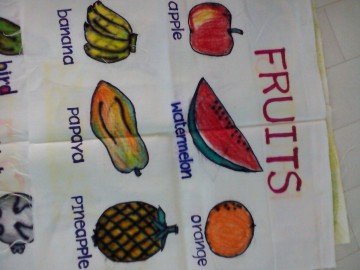 FRUITS
apple
watermelon
orange
banana
papaya
pineapple
bird